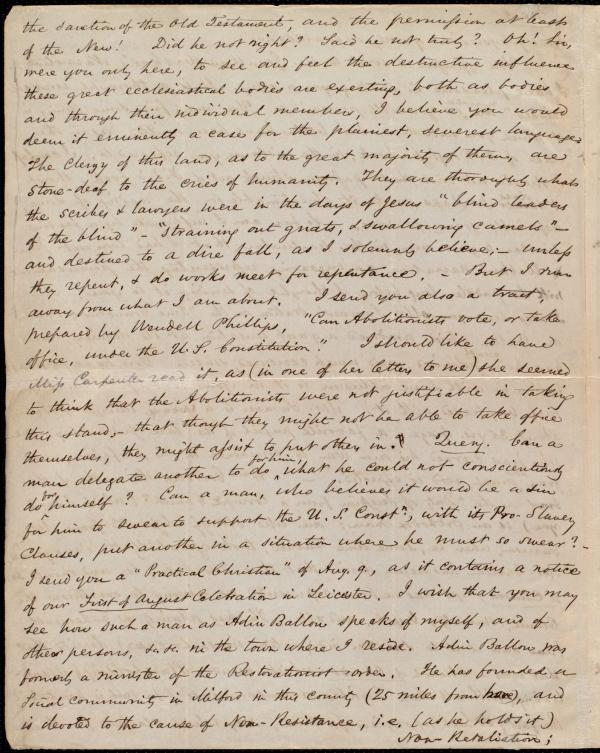 the sanction of the Old Testament, and the permission at least
of the New! Did he not right? Said he not truly? Oh! Sir,
were you only here, to see and feel the destructive influence
these great ecclesiastical bodies are exerting, both as bodies
and through their individual members, I believe you would
deem it eminently a case for the plainest, severest language.
The Clergy of this land, as to the great majority of them, are
stone-deaf to the cries of humanity. They are thoroughly what
the scribes & lawyers were in the days of Jesus "blind leaders
of the blind" – "straining out gnats, & swallowing camels" –
and destined to a dire fall, as I solemnly believe; – unless
they repent, & do works meet for repentance. – But I run
away from what I am about. I send you also a tract,
prepared by Wendell Phillips, "Can Abolitionists vote, or take
office, under the U.S. Constitution?" I should like to have
Miss Carpenter read it, as (in one of her letters to me) she seemed
to think that the Abolitionists were not justifiable in taking
this stand, – that though they might not be able to take office
themselves, they might assist to put others in. Query. Can a
man delegate another to do for him, what he could not conscientiously
do for himself? Can a man, who believes it would be a sin
for him to swear to support the U.S. Constn, with its Pro-Slavery
Clauses, put another in a situation where he must so swear? –
I send you a "Practical Christian" of Aug. 9, as it contains a notice
of our First of August Celebration in Leicester. I wish that you may
see how such a man as Adin Ballou speaks of myself, and of
other persons, &c. &c. in the town where I reside. Adin Ballou was
formerly a minister of the Restorationist order. He has founded a
Social community in Milford in this county (25 miles from here), and
is devoted to the cause of Non-Resistance, i.e. (as he holds it)
Non-Retaliation;